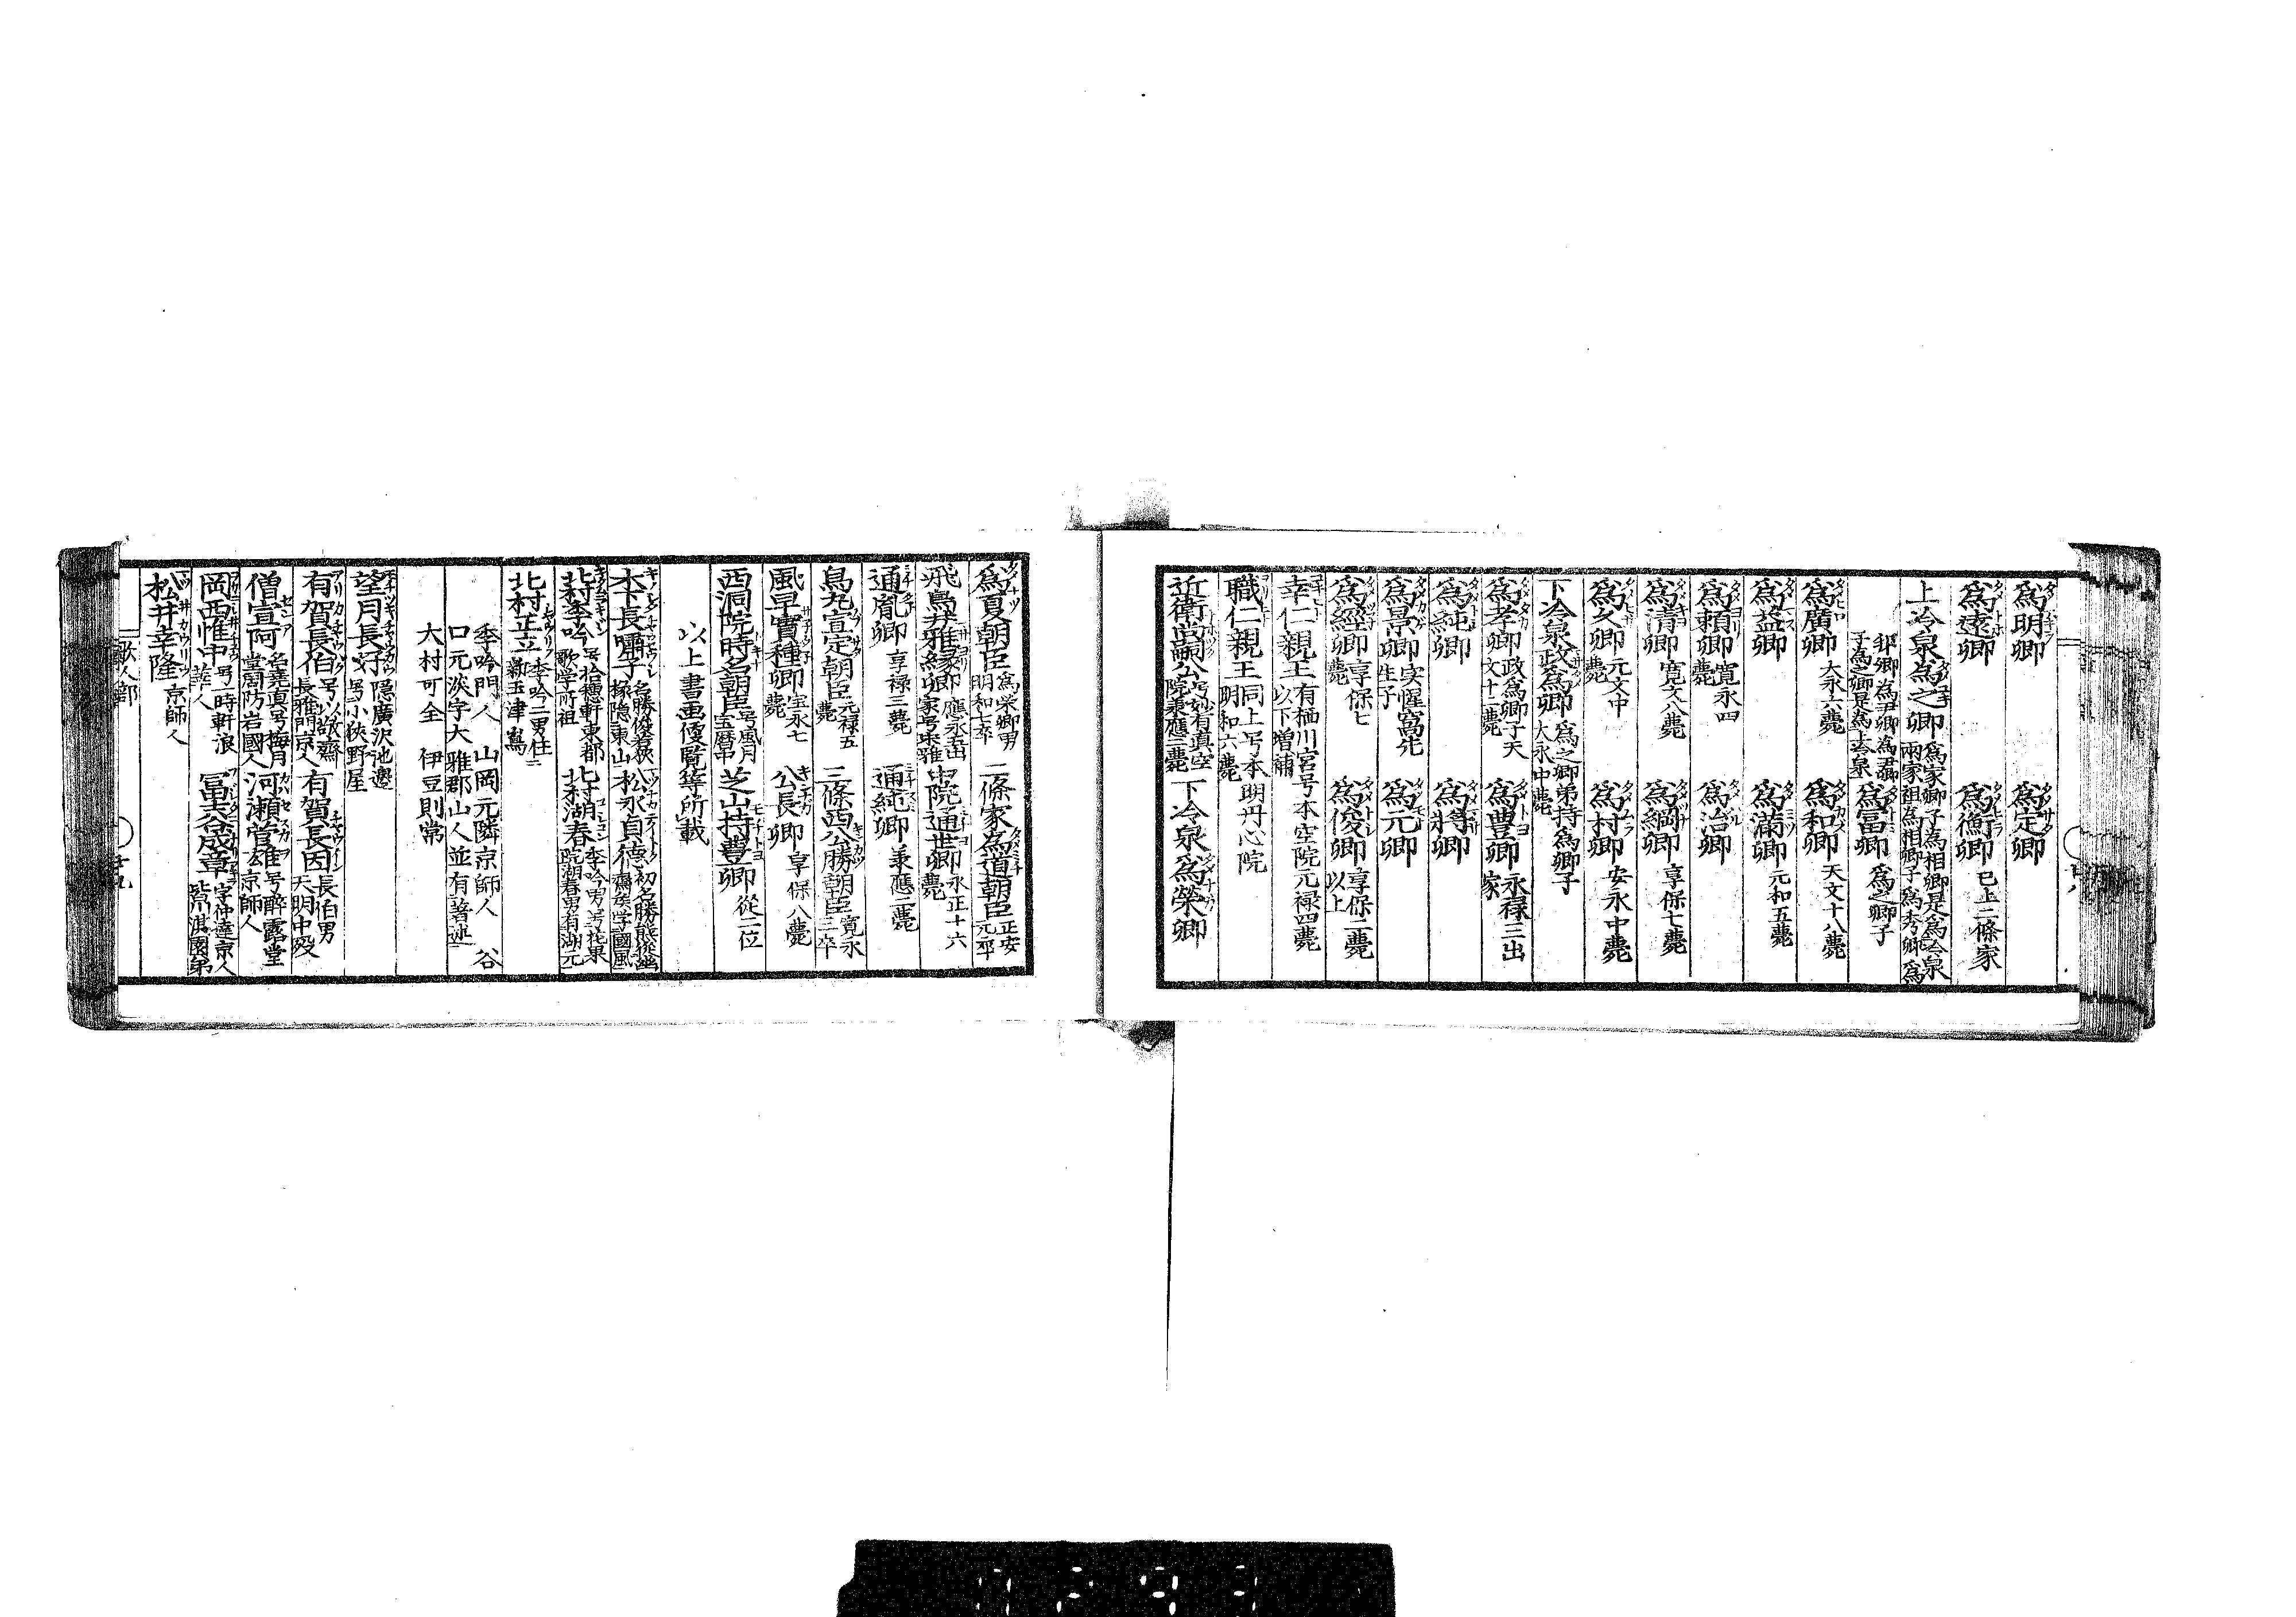 爲明卿 爲定卿
爲遠卿 爲衡卿 已上二條家
上冷泉爲之卿 爲家卿子爲相卿是爲冷泉兩家祖爲相卿子爲秀卿爲
邦卿爲尹卿爲之卿是爲上冷泉 爲冨卿 爲之卿子
爲廣卿 大永六薨 爲和卿 天文十八薨
爲益卿 爲滿卿 元和五薨
爲頼卿 寛永四薨 爲治卿
爲清卿 寛文八薨 爲綱卿 享保七薨
爲久卿 元文中薨 爲村卿 安永中薨
下冷泉政爲卿 爲之卿弟持爲卿子大永中薨
爲孝卿 政爲卿子天文十二薨 爲豊卿 永禄三出家
爲純卿 爲將卿
爲景卿 実惺窩先生子 爲元卿
爲經卿 享保七薨 爲俊卿 享保二薨以上
幸仁親王 有栖川宮号本空院元禄四薨以下増補
職仁親王 同上号本明丹心院明和六薨
近衛尚嗣公 号妙有真空院兼應二薨 下冷泉爲榮卿
爲夏朝臣 爲栄卿男明和七卒 二條家爲道朝臣 正安元卒
飛鳥井雅縁卿 應永出家号宋雅 中院通世卿 永正十六薨
通胤卿 享禄三薨 通純卿 兼應二薨
烏丸宣定朝臣 元禄五薨 三條西公勝朝臣 寛永三卒
風早實種卿 宝永七薨 公長卿 享保八薨
西洞院時名朝臣 号風月宝暦中 芝山持豊卿 從二位
以上書画便覧等所載
木下長嘯子 名勝俊若狹掾隠東山 松永貞徳 初名勝熊從幽齋矦学國風
北村季吟 号拾穂軒東都歌学所祖 北村湖春 季吟男号花果院湖春男有湖元
北村正立 季吟二男住新玉津嶌
季吟門人 山岡元隣京師人 谷
口元淡字大雅郡山人並有著述
大村可全 伊豆則常
望月長好 隠廣沢池邊号小狹野屋
有賀長伯 号以敬齋長雅門京人 有賀長因 長伯男天明中殁
僧宣阿 名堯真号梅月堂周防岩國人 河瀬菅雄 号醉露堂京師人
岡西惟中 号一時軒浪華人 冨士谷成章 字仲達京人皆川淇園弟
松井幸隆 京師人
歌人部
廿九